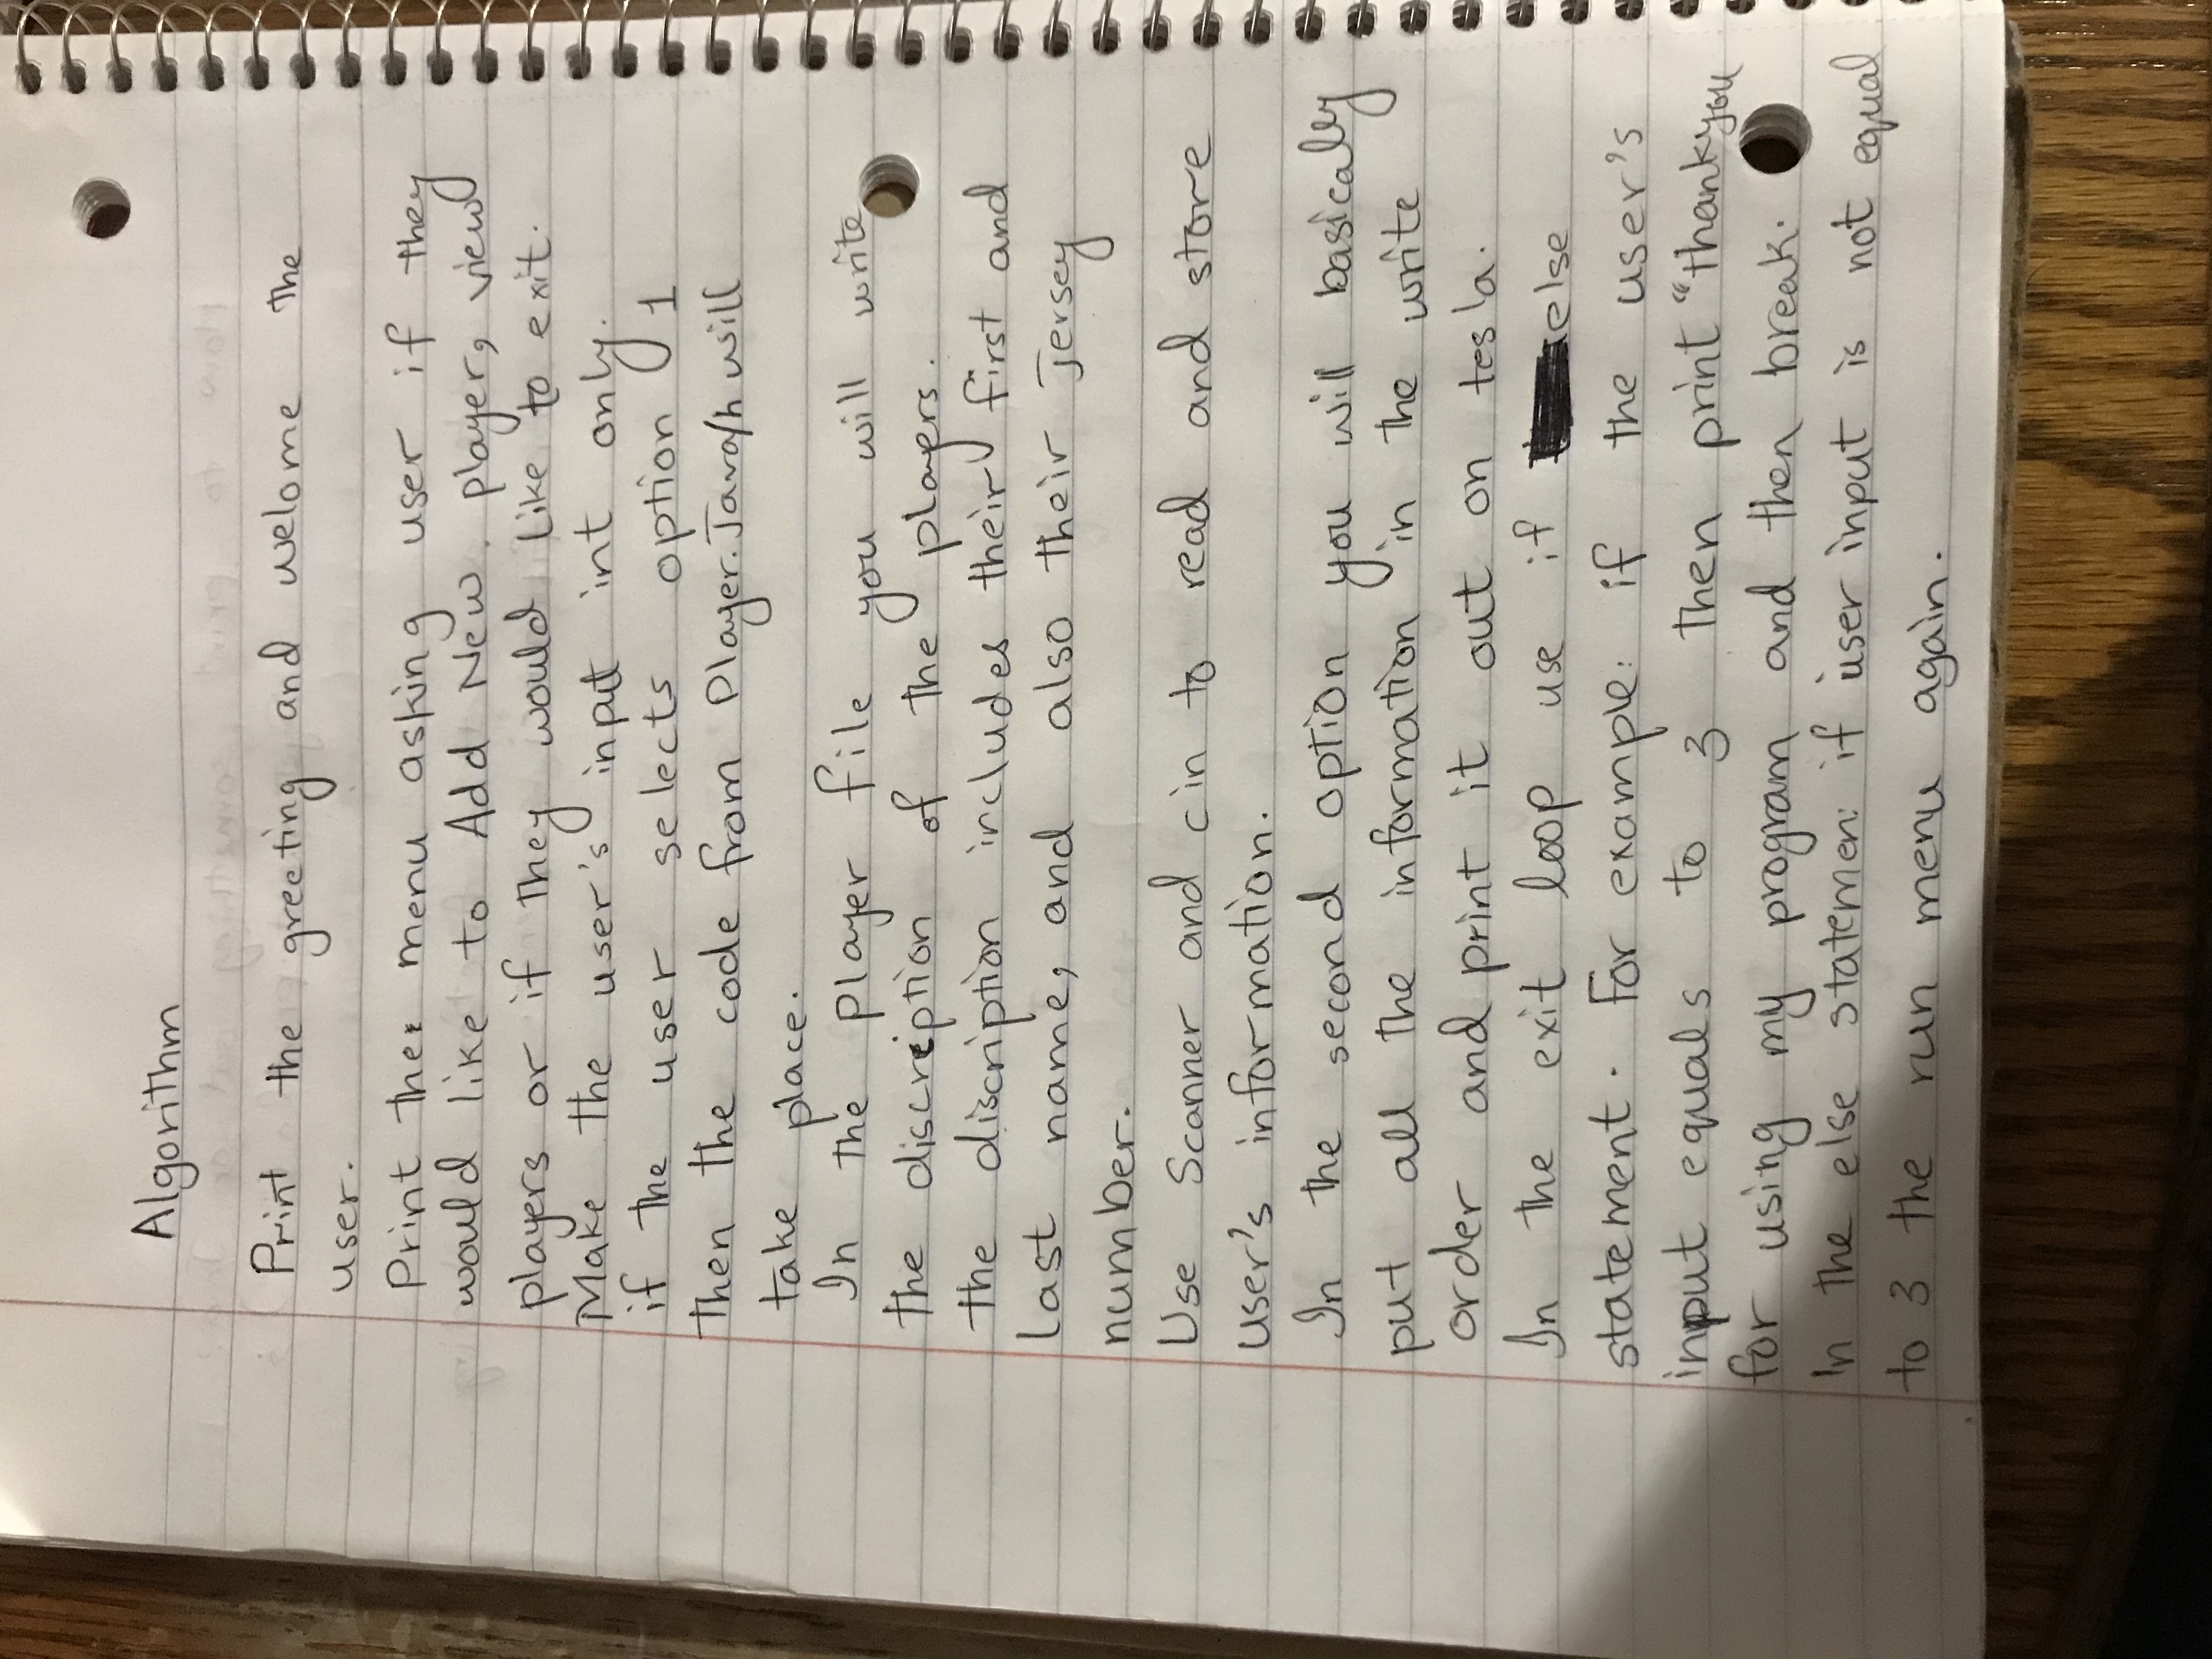 Algorithm
Print the greeting and welome the
user.
Print the menu asking user if they
would like to Add New player, view
players or if they would like to exit.
Make the user's input int only.
if the user selects option 1
then the code from Player.Java/h will
take place.
In the player file you will write
the discreption of the players.
the discription includes their first and
last name, and also their jersey
number.
Use Scanner and cin to read and store
user's information.
In the second option you will basically
put all the information in the write
order and print it out on tesla.
In the exit loop use if else
statement. For example: if the user's
input equals to 3 then print "thankyou
for using my program and then break.
In the else statemen: if user input is not equal
to 3 the run menu again.